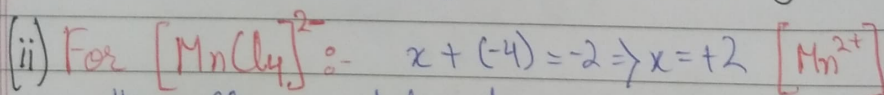 (ii) For [MnCl₄]²⁻ :- x + (-4) = -2 ⇒ x = +2 [Mn²⁺]